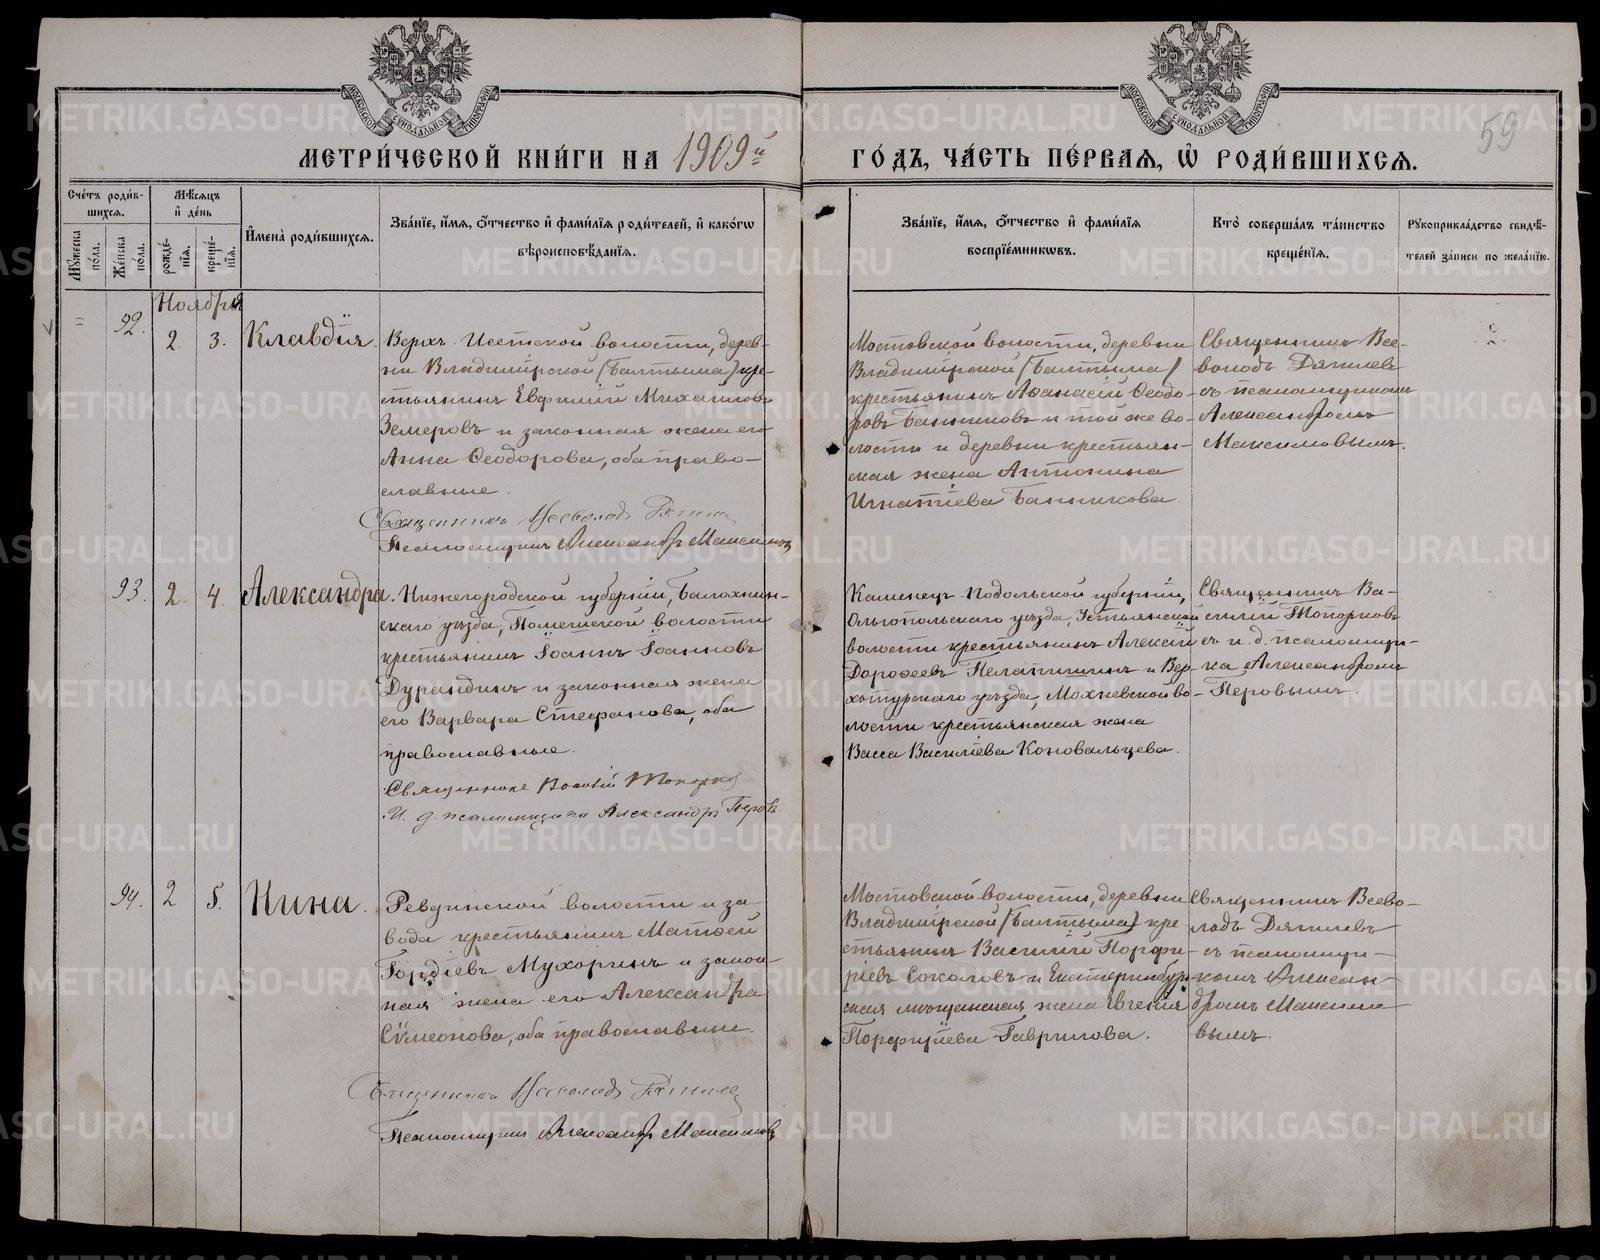 МОСКОВСКОЙ СУНОДАЛЬНОЙ ТИПОГРАФІИ
МОСКОВСКОЙ СУНОДАЛЬНОЙ ТИПОГРАФІИ
59
МЕТРИ́ЧЕСКОЙ КНИ́ГИ НА 1909й ГО́ДЪ, ЧА́СТЬ ПЕ́РВАЯ, Ѡ РОДИ́ВШИХСЯ.
Сче́тъ роди́в-
шихся.
Мꙋжеска по́ла.
Же́нска по́ла.
Мѣ́сяцъ
и҆ де́нь
рожде́-
нїя.
креще́-
нїя.
И҆мена̀ роди́вшихся.
Зва́нїе, и҆́мя, ѻ҆́тчество и҆ фами́лїя роди́телей, и҆ како́гѡ
вѣроисповѣ́данїя.
Зва́нїе, и҆́мя, ѻ҆́тчество и҆ фами́лїя
воспрїе́мникѡвъ.
Кто̀ соверша́лъ та́инство
креще́нїя.
Рꙋкоприкла́дство свидѣ́-
телей за́писи по жела́нїю.
Ноября
92. 2. 3. Клавдія.
Верхъ-Исетской волости, дерев-
ни Владимірской (Балтыма) кре-
стьянинъ Евфимій Михаиловъ
Земеровъ и законная жена его
Анна Ѳеодорова, оба право-
славные.
Священникъ Всеволодъ Дягилев
Псаломщикъ Александръ Максимов
Мостовской волости, деревни
Владимірской (Балтыма)
крестьянинъ Аѳанасій Ѳеодо-
ровъ Банниковъ и той же во-
лости и деревни крестьян-
ская жена Антонина
Игнатіева Банникова.
Священникъ Все-
володъ Дягилевъ
съ псаломщикомъ
Александромъ
Максимовымъ.
93. 2. 4. Александра.
Нижегородской губерніи, Балахнин-
скаго уѣзда, волости
крестьянинъ Іоаннъ Іоанновъ
Дурандинъ и законная жена
его Варвара Стефанова, оба
православные.
Священникъ Василій Топорков
И. д. псаломщика Александръ Перовъ.
Каменецъ-Подольской губерніи,
Ольгопольскаго уѣзда, Устьянской
волости крестьянинъ Алексій
Дороѳеевъ и Вер-
хотурскаго уѣзда, Махневской во-
лости крестьянская жена
Васса Василіева Коновальцева.
Священникъ Ва-
силій Топорковъ
съ и. д. псаломщи-
ка Александромъ
Перовымъ.
94. 2 5. Нина.
Ревдинской волости и за-
вода крестьянинъ Матѳей
Гордіевъ Мухоринъ и закон-
ная жена его Александра
Сѵмеонова, оба православные.
Священникъ Всеволодъ Дягилев
Псаломщикъ Александръ Максимовъ
Мостовской волости, деревни
Владимірской (Балтыма) кре-
стьянинъ Василій Порфи-
ріевъ Соколовъ и Екатеринбург-
ская мѣщанская жена Евгенія
Порфиріева Гаврилова.
Священникъ Всево-
лодъ Дягилевъ
съ псаломщи-
комъ Алексан-
дромъ Максимо-
вымъ.
METRIKI.GASO-URAL.RU